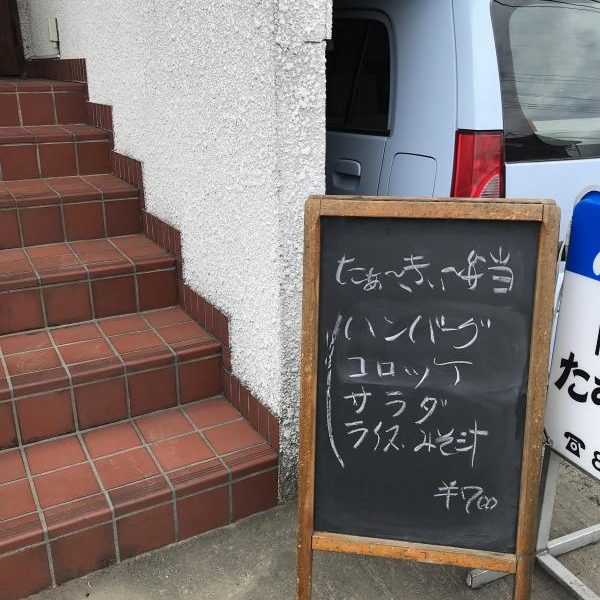 たぁ〜きぃ〜弁当
ハンバーグ
コロッケ
サラダ
ライス、みそ汁
¥700
た
☎8